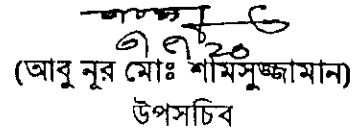 (আবু নূর মোঃ শামসুজ্জামান)
উপসচিব